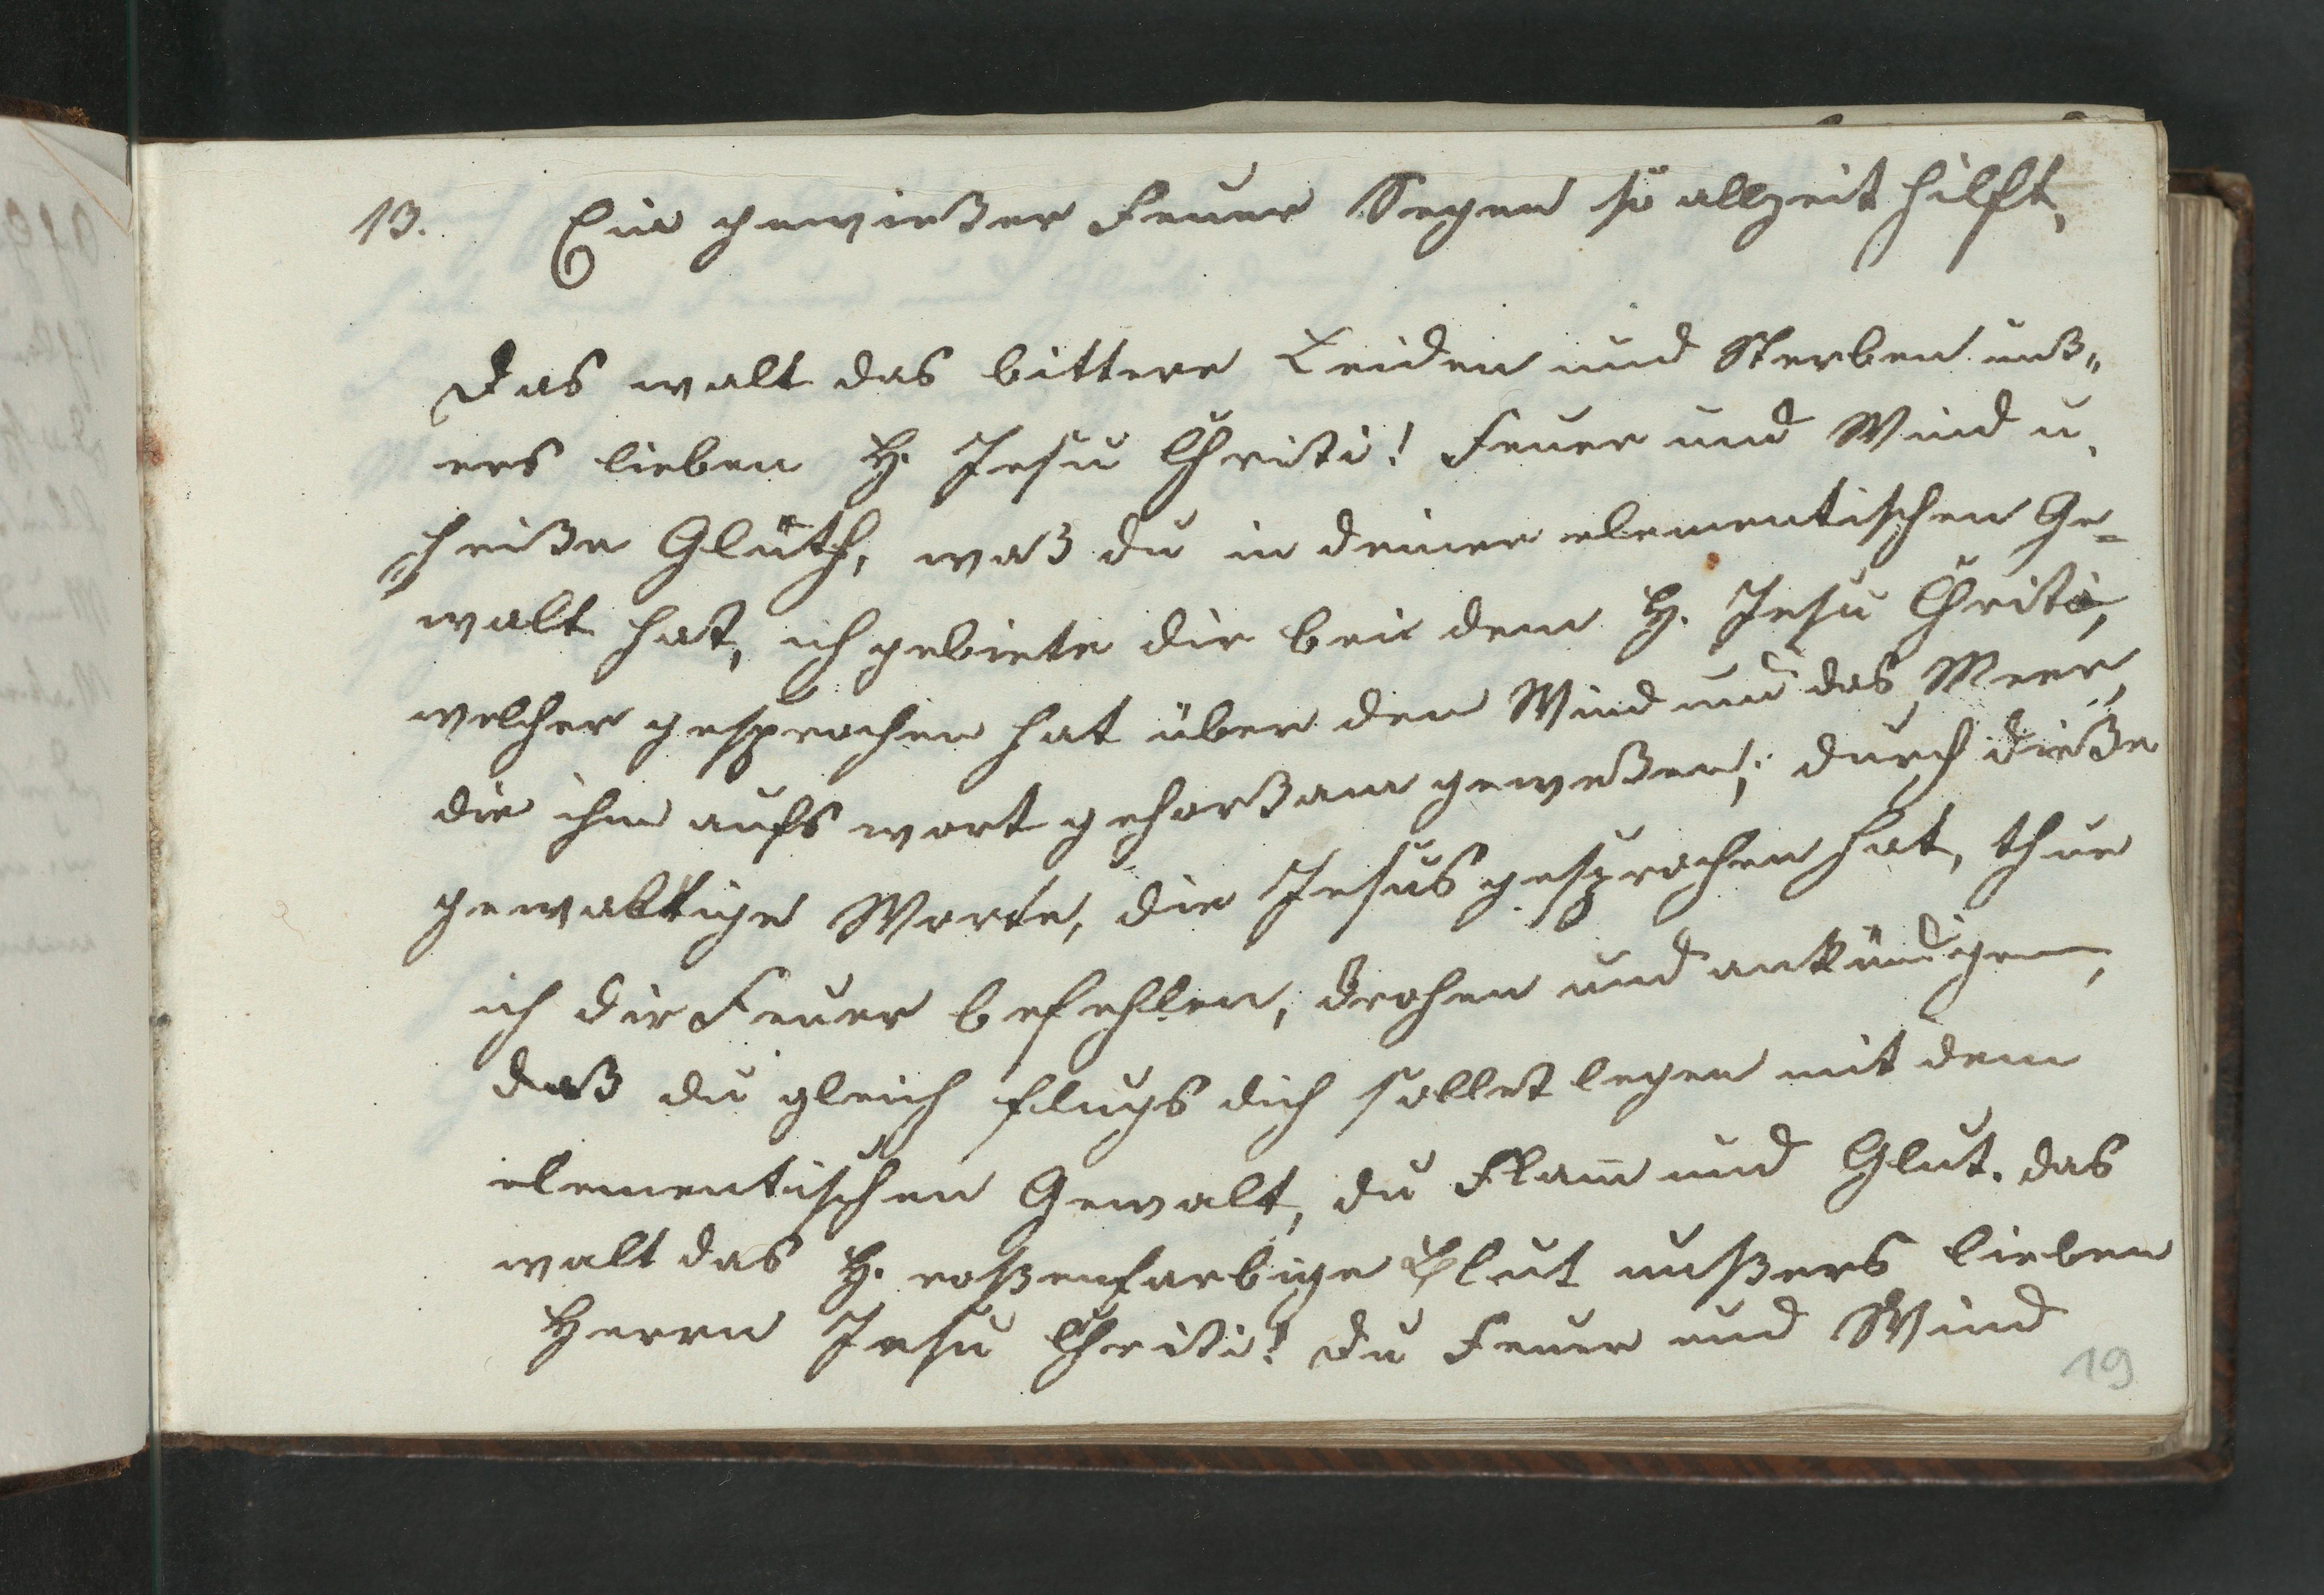 13. Ein gewießer Feuer Segen so allzeit hilft,
Das walt das bittere Leiden und Sterben unß„
ers lieben H. Jesu Christi! Feuer und Wind u.
„heiße Gluth, waß du in deiner elementischen Ge=
walt hast, ich gebiete dir bei dem H. Jesu Christi,
welcher gesprochen hat über den Wind und das Meer,
die ihm aufs wort gehorßam geweßen; durch dieße
gewaltige Worte, die Jesus gesprochen hat, thue
ich dir Feuer befehlen, drohen und ankündigen,
daß du gleich flugs dich sollest legen mit dem
elementischen Gewalt, du Flam̄ und Glut. das
walt das H. roßenfarbige Blut unßers lieben
Herrn Jesu Christi! du Feuer und Wind
19